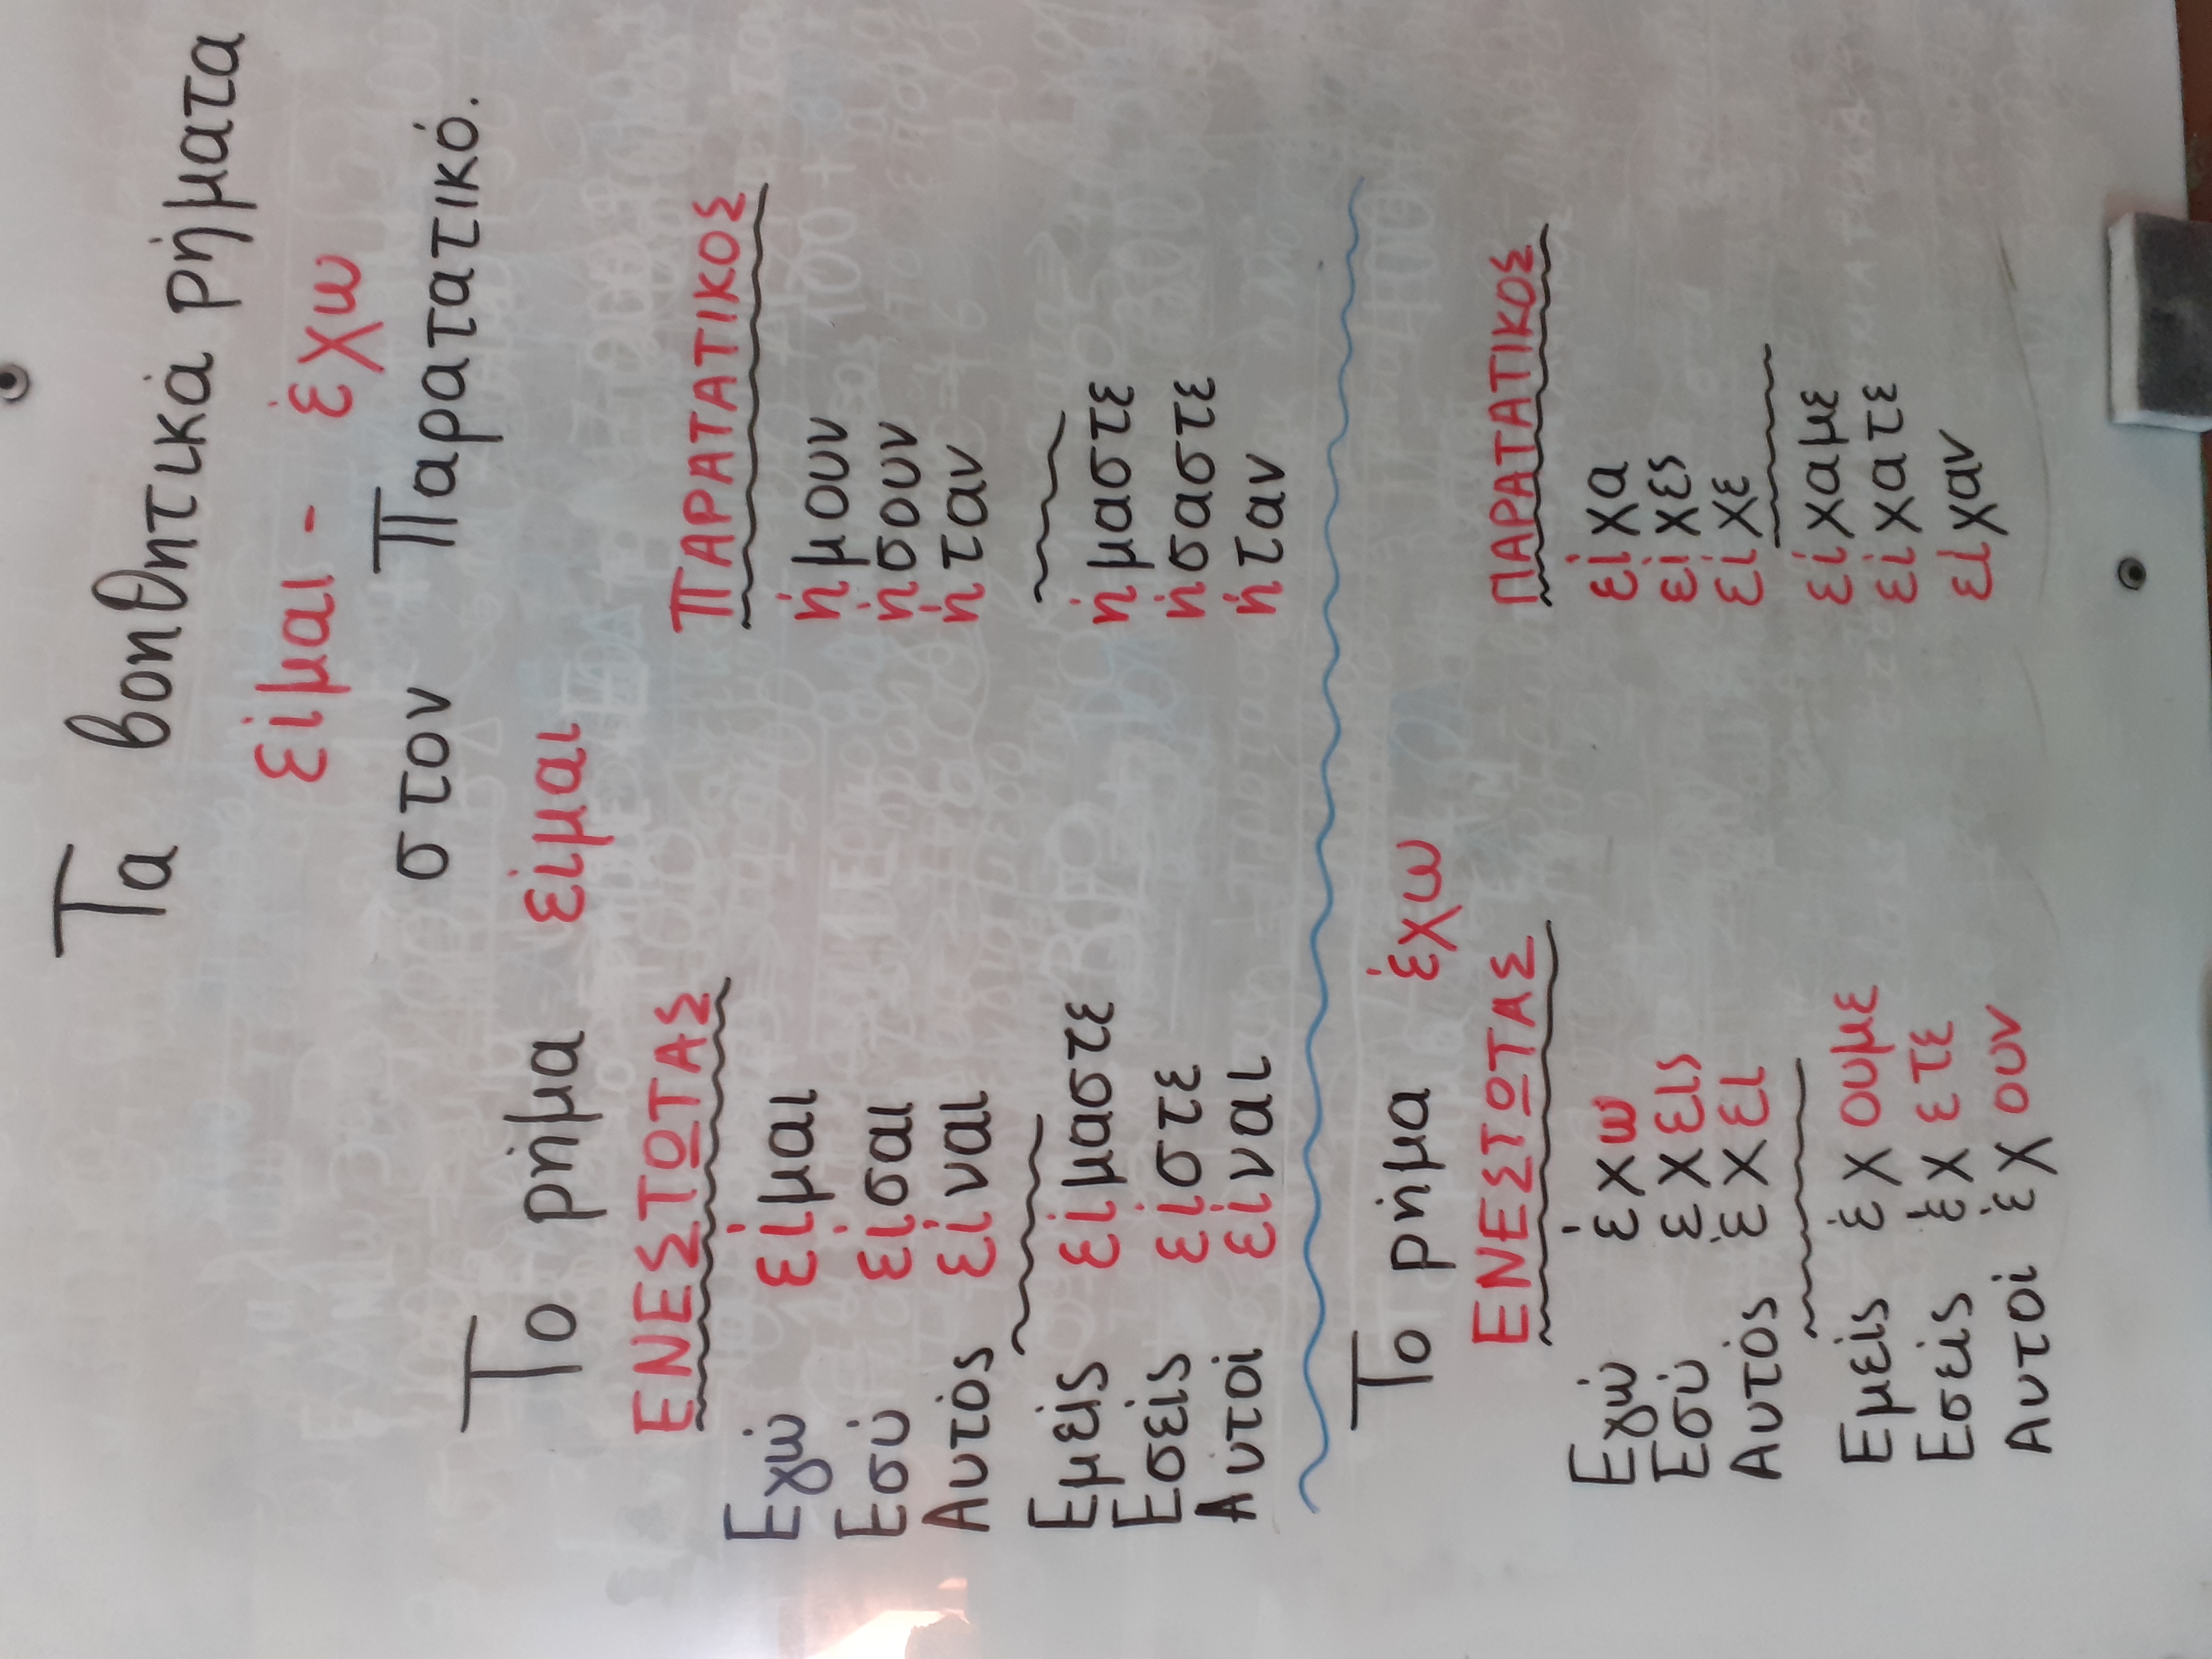 Τα βοηθητικά ρήματα
είμαι - έχω
στον Παρατατικό.
Το ρήμα είμαι
ΕΝΕΣΤΩΤΑΣ ΠΑΡΑΤΑΤΙΚΟΣ
Εγώ είμαι ήμουν
Εσύ είσαι ήσουν
Αυτός είναι ήταν
Εμείς είμαστε ήμαστε
Εσείς είστε ήσαστε
Αυτοί είναι ήταν
Το ρήμα έχω
ΕΝΕΣΤΩΤΑΣ ΠΑΡΑΤΑΤΙΚΟΣ
Εγώ έχω είχα
Εσύ εχεις είχες
Αυτός έχει είχε
Εμείς έχουμε είχαμε
Εσείς έχετε είχατε
Αυτοί έχουν είχαν